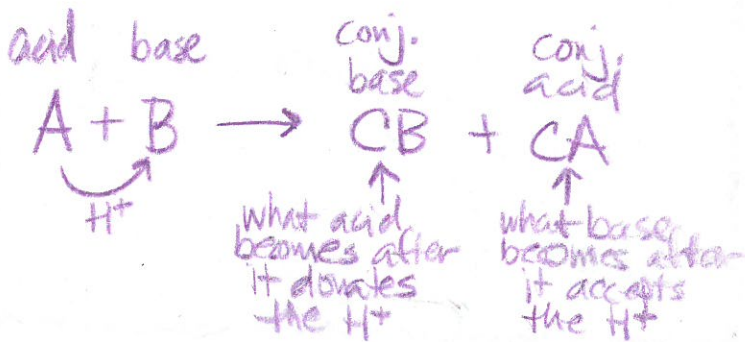 acid base conj. base conj. acid
A + B → CB + CA
H+
what acid
becomes after
it donates
the H+
what base
becomes after
it accepts
the H+